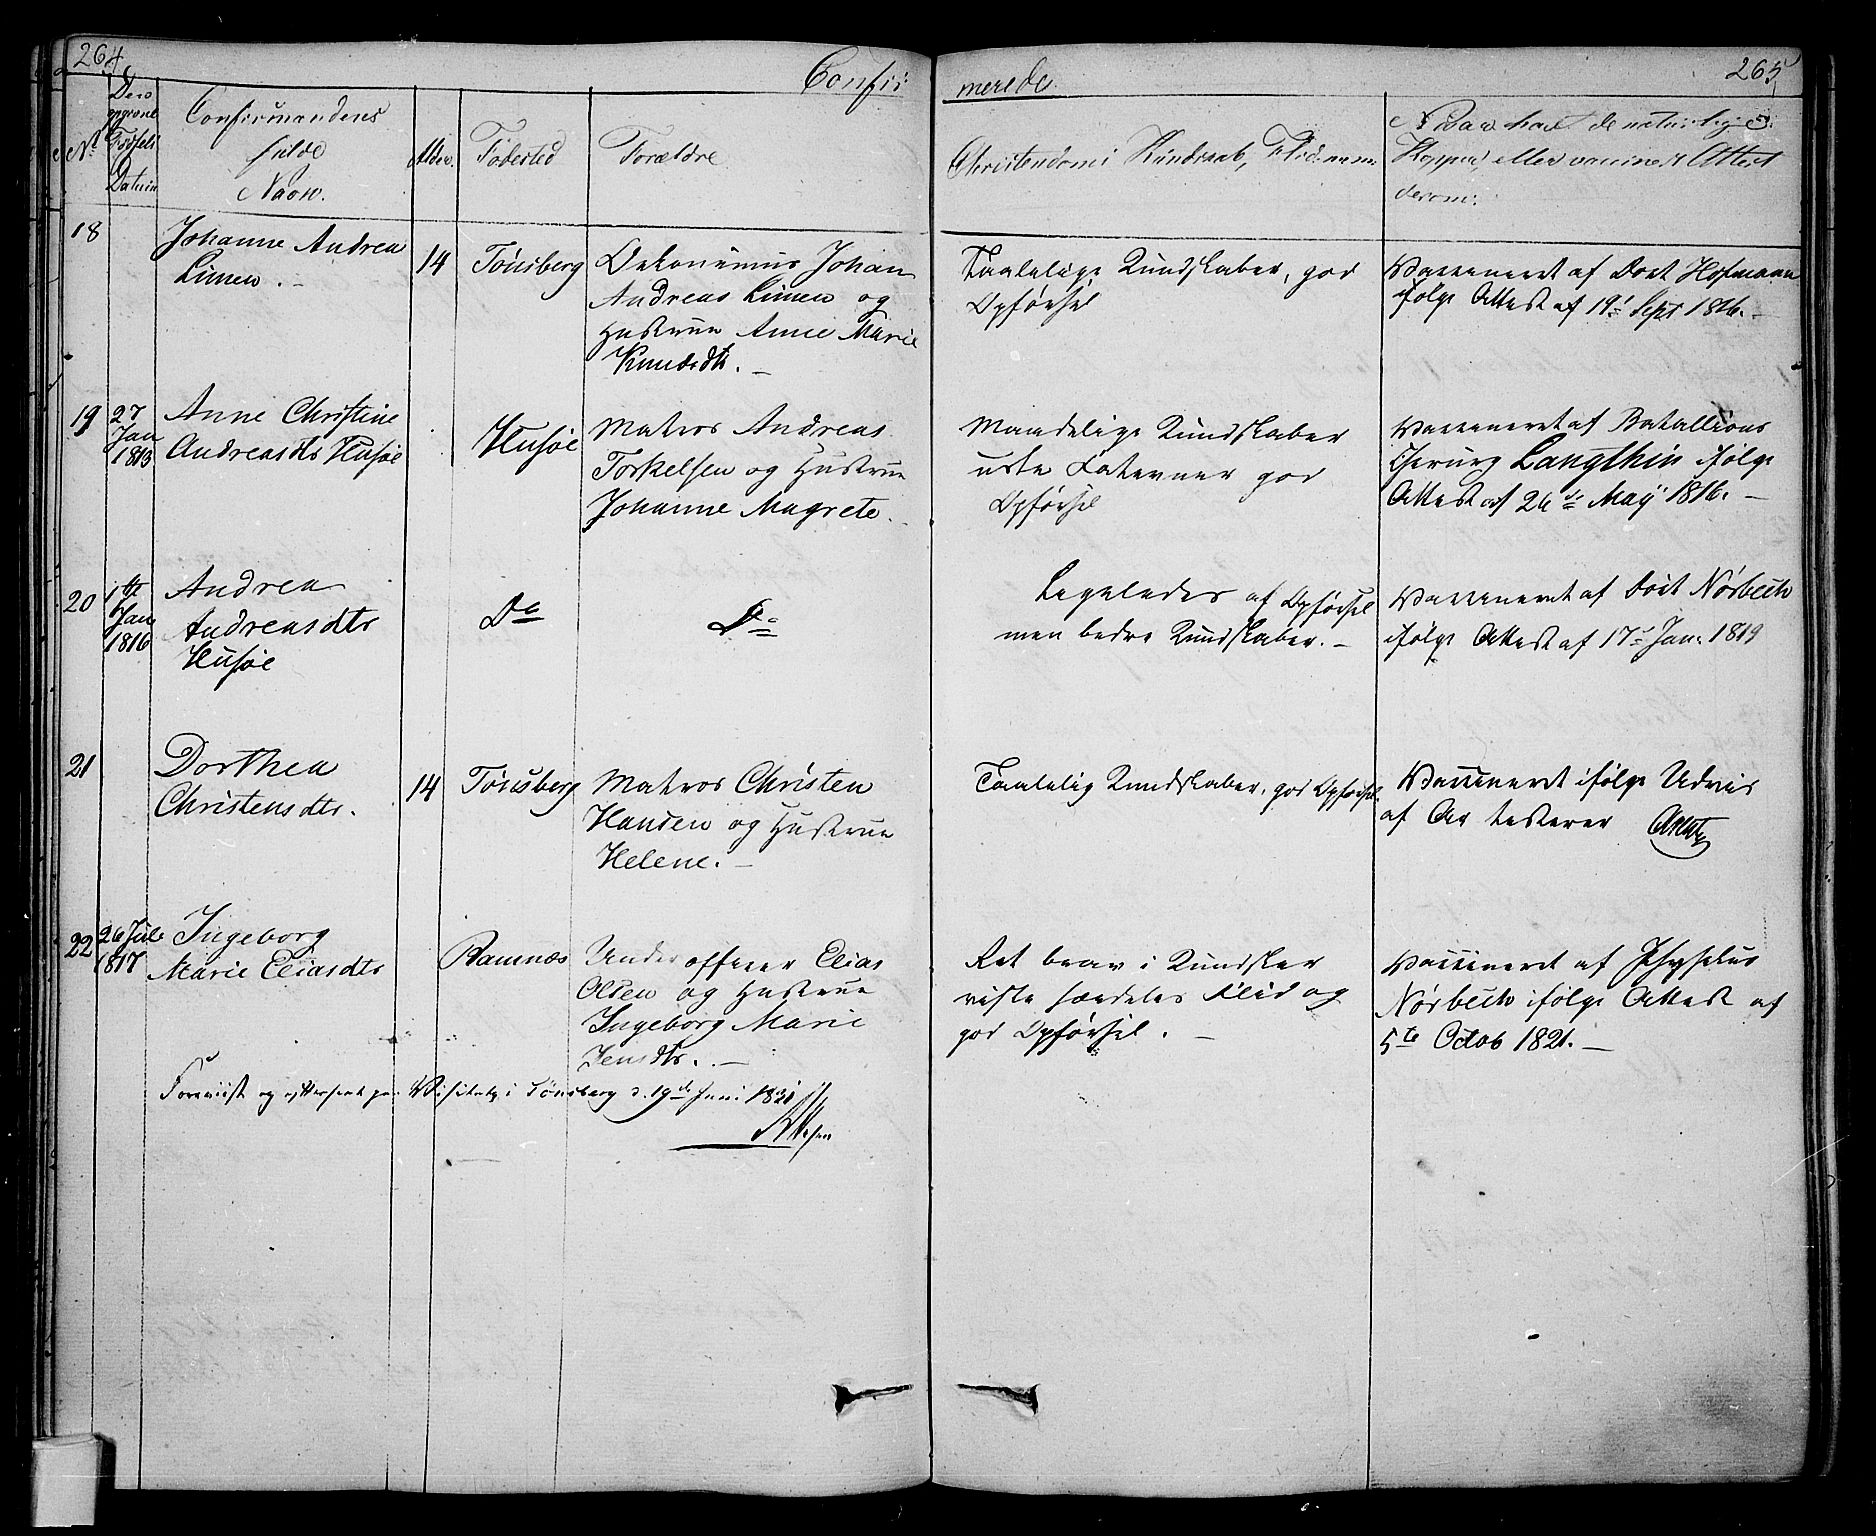 264
Confir
merede
265
No
Deres
opgivne
Fødsels
Datum
Confirmandens
fulde
Navn.
Alder.
Fødested
Forældre
Christendoms Kundskab, Flid
Naar havt de naturlige
Kopper, eller vaccinert Attest
derom:
18
Johanne Andrea
Linnen. -
14
Tønsberg
Oekonomus Johan
Andreas Linnen og
Hustrue Anne Marie
Knudsdtr. -
Taalelige Kundskaber, god
Opførsel
Vaccineret af Doct Hofmann
ifølge Attest af 19 Sept 1816. -
19
27
Jan
1813
Anne Christine
Andreasdtr Husøe
Husøe
Matros Andreas
Torkelsen og Hustrue
Johanne Magrete.
Maadelige Kundskaber
god
Opførsel
Vaccineret af Batallions
Chirurg Langthin ifølge
Attest af 26de May 1816. -
20
1te
Jan
1816
Andrea
Andreasdtr
Husøe
Do
Do
Ligeledes af Opførsel
men bedre Kundskaber. -
Vaccineret af Doct Nørbech
ifølge Attest af 17 Jan. 1819
21
Dorthea
Christensdtr.
14
Tønsberg
Matros Christen
Hansen og Hustrue
Helene. -
Taalelig Kundskaber, god Opførsel.
Vaccineret ifølge Udviis
af Ar
22
26 Juli
1817
Ingeborg
Marie Eliasdtr
Ramnæs
Underofficer Elias
Olsen og Hustrue
Ingeborg Marie
Jensdtr. -
Ret brav i Kundskab
viste særdeles Flid og
god Opførsel. -
Vaccineret af Physicus
Nørbech ifølge Attest af
5te Octob 1821. -
Foreviist og efterseet paa Visitatz i Tønsberg d. 19de Juni 1831